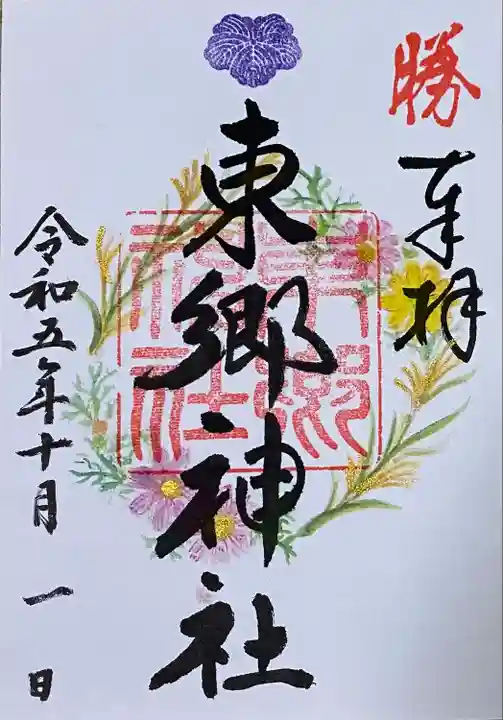 勝
奉拝
東郷神社
東郷神社
令和五年十月一日